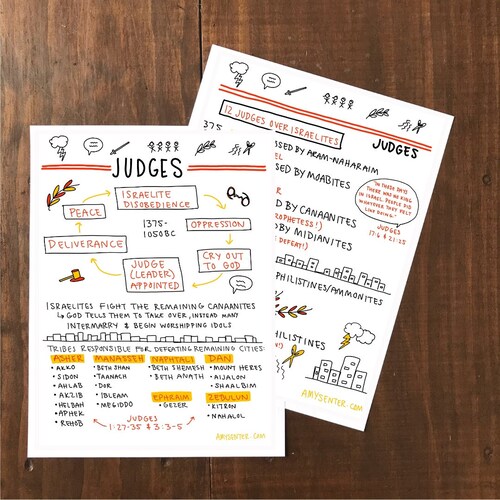 JUDGES
ISRAELITE
DISOBEDIENCE
PEACE
1375-
1050BC
OPPRESSION
DELIVERANCE
CRY OUT
TO GOD
JUDGE
(LEADER)
APPOINTED
ISRAELITES FIGHT THE REMAINING CANAANITES
↳ GOD TELLS THEM TO TAKE OVER, INSTEAD MANY
INTERMARRY & BEGIN WORSHIPPING IDOLS
TRIBES RESPONSIBLE FOR DEFEATING REMAINING CITIES:
ASHER
• AKKO
• SIDON
• AHLAB
• AKZIB
• HELBAH
• APHEK
• REHOB
MANASSEH
• BETH SHAN
• TAANACH
• DOR
• IBLEAM
• MEGIDDO
NAPHTALI
• BETH SHEMESH
• BETH ANATH
EPHRAIM
• GEZER
DAN
• MOUNT HERES
• AIJALON
• SHAALBIM
ZEBULUN
• KITRON
• NAHALOL
JUDGES
1:27-35 & 3:3-5
AMYSENTER.COM
12 JUDGES OVER ISRAELITES
JUDGES
1375
SSED BY ARAM-NAHARAIM
EL
SED BY MOABITES
"IN THOSE DAYS
THERE WAS NO KING
IN ISRAEL. PEOPLE DID
WHATEVER THEY FELT
LIKE DOING."
JUDGES
17:6 & 21:25
BY CANAANITES
PROPHETESS!)
BY MIDIANITES
DEFEAT!)
PHILISTINES/AMMONITES
HILISTINES
AMYSENTER.COM